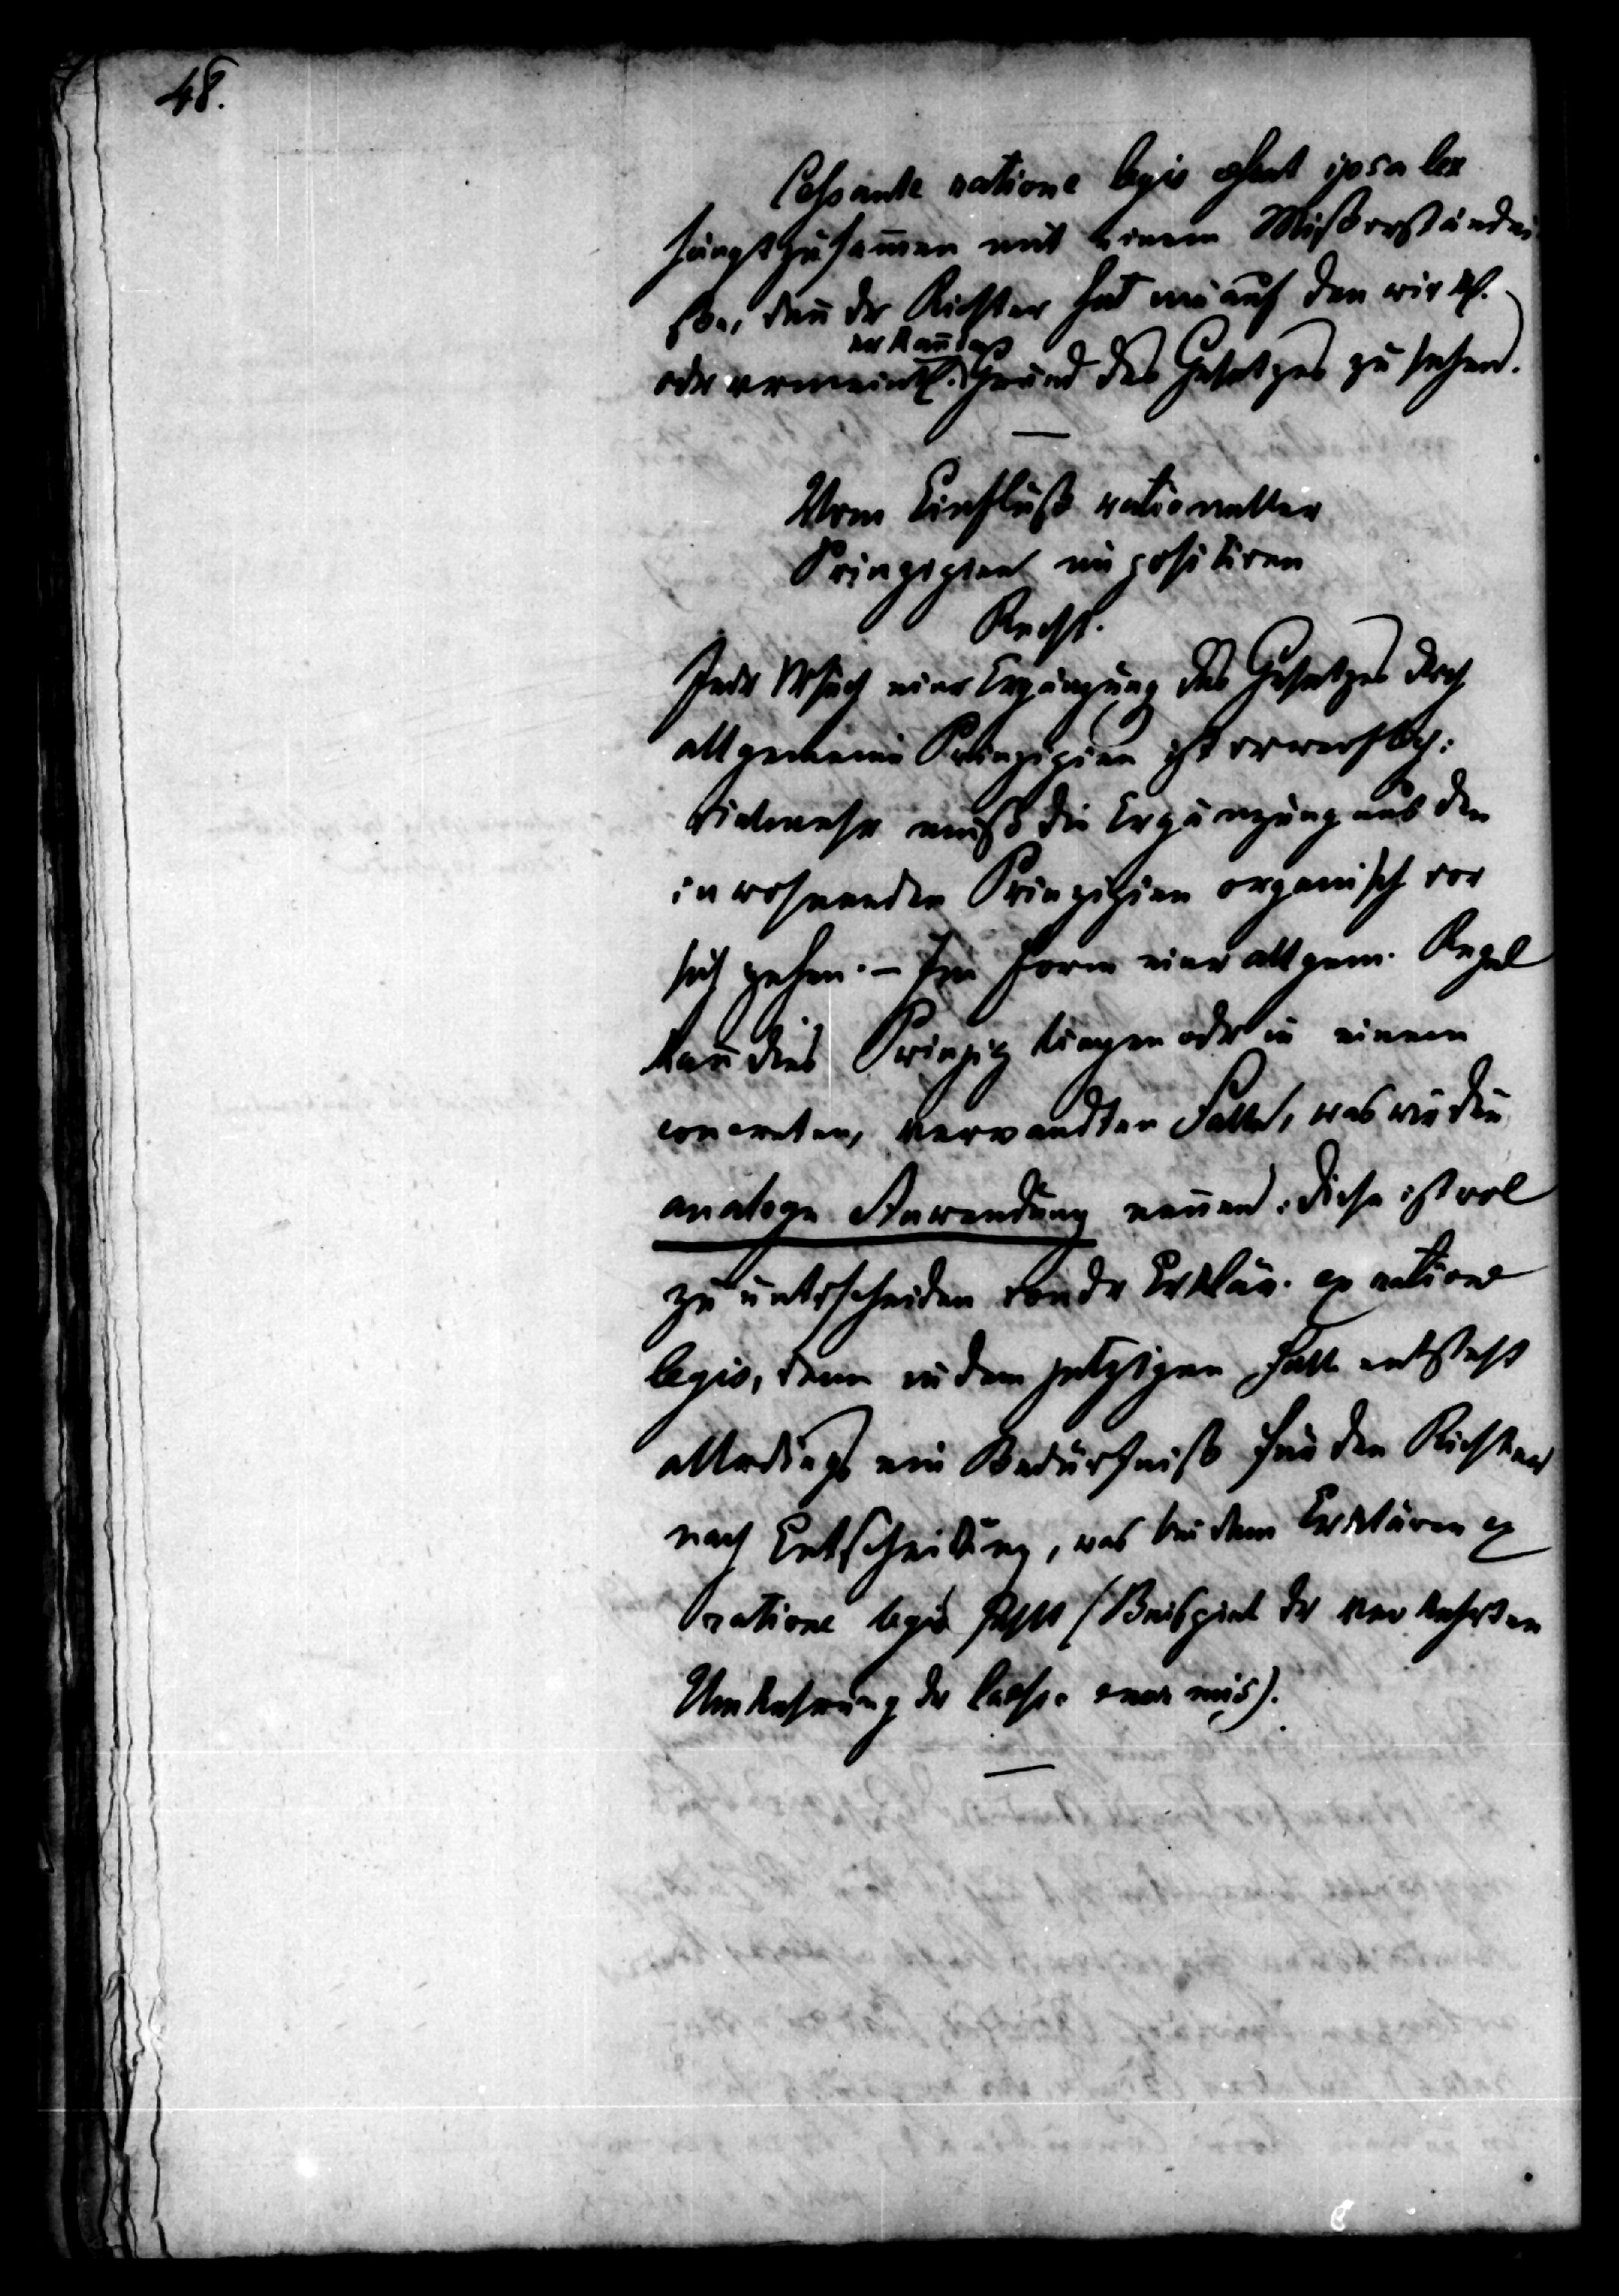 48.
Cessante ratione legis cessat ipsa lex
hängt zusam̅en mit einem Mißverständni
ße, den̅ der Richter hat nie auf den wirkl.
oder vermeintl. Grund des Gesetzes zu sehen.
Vom Einfluß rationeller
Prinzipien im positiven
Recht.
Jeder Versuch einer Ergänzung des Gesetzes durch
allgemeine Prinzipien ist verwerflich:
vielmehr muß die Ergänzung aus den
inwohnenden Prinzipien organisch vor
sich gehen. – In Form einer allgem. Regel
kan̅ dies Prinzip liegen oder in einem
concreten, verwandten Falle, was wir die
analoge Anwendung nen̅en. Diese ist wol
zu unterscheiden von der Erklär. ex ratione
legis, denn in dem jetzigen Fall entsteht
allerdings ein Bedürfniß für den Richter
nach Entscheidung, was bei dem Erklären ex
ratione legis fehlt (Beispiel der verkehrten
Umkehrung der laesio enormis).